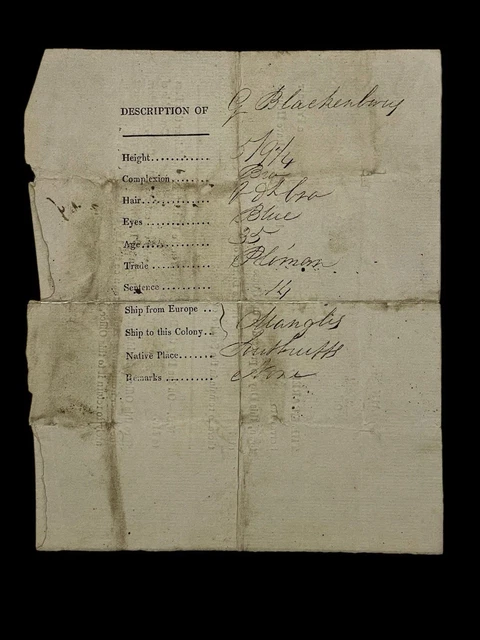 DESCRIPTION OF G Blackenbury
Height........... 5/9 1/4
Complexion........ Bro
Hair............. D & L bro
Eyes ............ Blue
Age.............. 35
Trade ........... Ploman
Sentence ......... 14
Ship from Europe ..
Ship to this Colony.. } Manglis
Native Place.......
Remarks .......... None